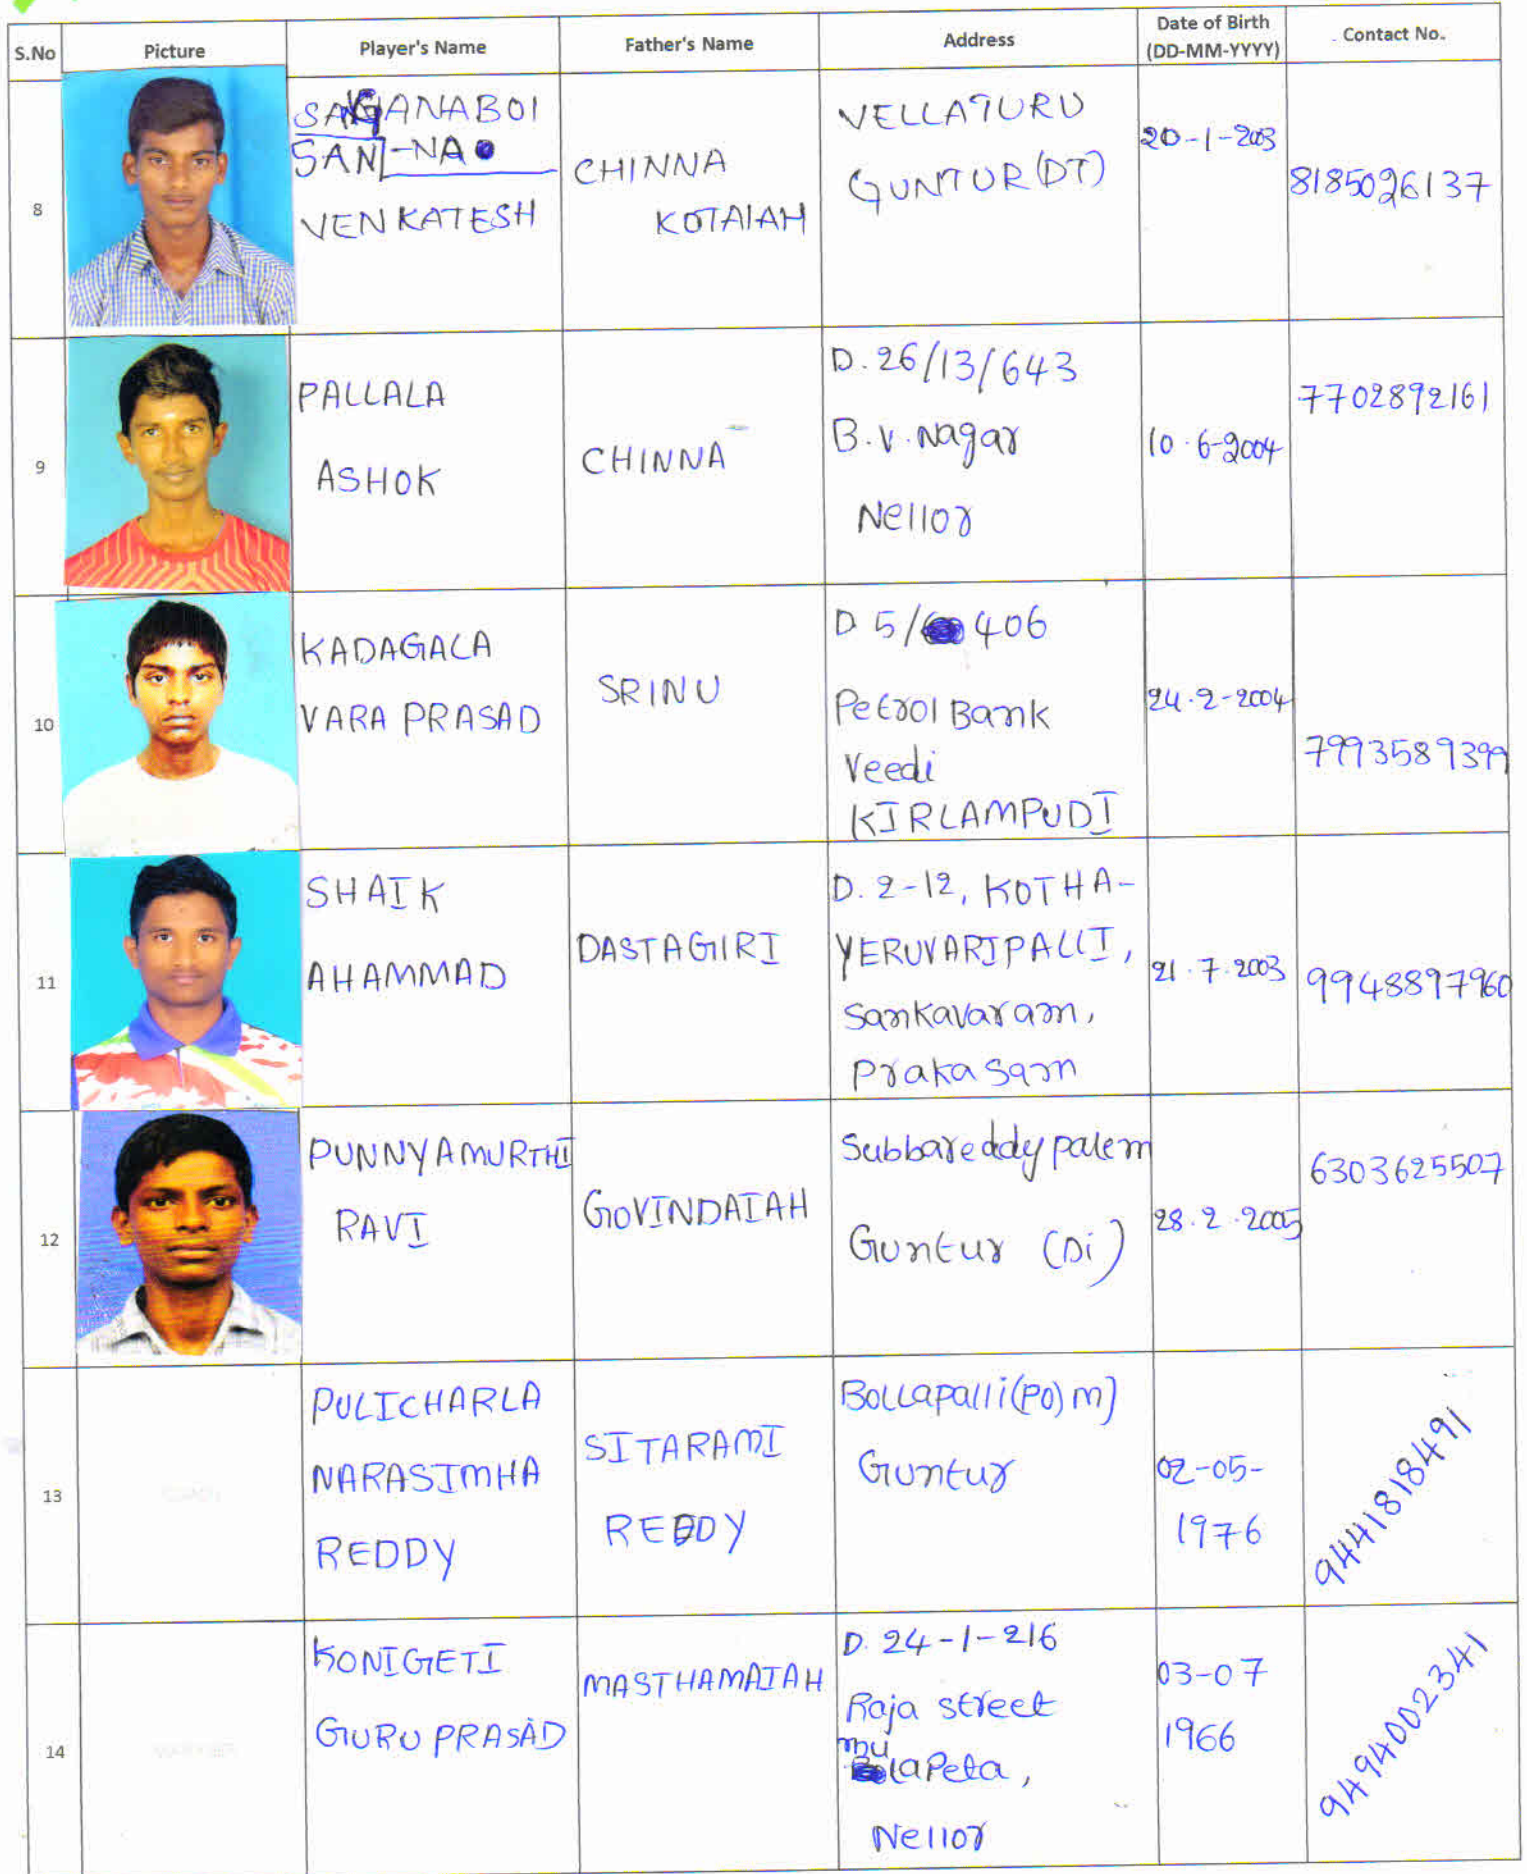 S.No Picture Player's Name Father's Name Address Date of Birth (DD-MM-YYYY) Contact No.
8
SANI-NA
VENKATESH
CHINNA
KOTAIAH
VELLATURU
GUNTUR (DT)
20-1-2003
8185026137
9
PALLALA
ASHOK
CHINNA
D. 26/13/643
B.V. Nagar
Nellor
10-6-2004
7702892161
10
KADAGALA
VARA PRASAD
SRINU
D 5/ 406
Petrol Bank
Veedi
KIRLAMPUDI
24.2-2004
7993589399
11
SHAIK
AHAMMAD
DASTAGIRI
D. 2-12, KOTHA-
YERUVARIPALLI,
Sankavaram,
Prakasam
21.7.2003
9948897960
12
PUNNYAMURTHI
RAVI
GOVINDAIAH
Subbareddypalem
Guntur (Di)
28.2.2005
6303625507
13
PULICHARLA
NARASIMHA
REDDY
SITARAMI
REDDY
Bollapalli (PO) m)
Guntur
02-05-
1976
9441818491
14
KONIGETI
GURU PRASAD
MASTHAMAIAH
D. 24-1-216
Raja street
mulapeta,
Nellor
03-07
1966
9494002341